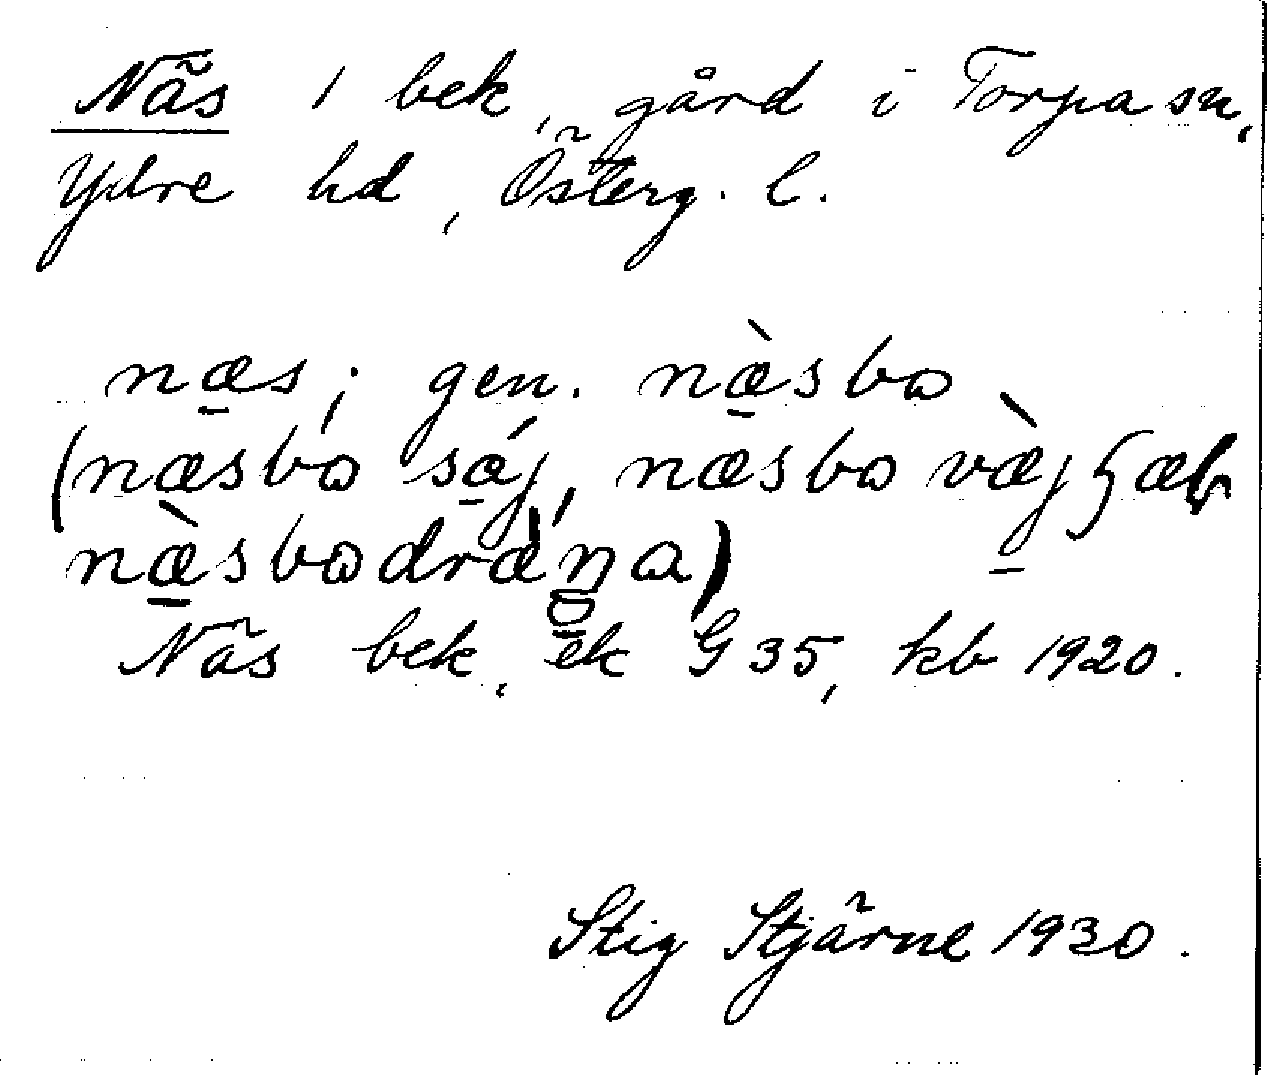 Näs 1 bek, gård i Torpa sn,
Ydre hd, Österg. l.
næs; gen. næ̀sbo
(næsbo so̱j, næsbo
næ̀sbo
Näs bek, ek G 35, kb 1920.
Stig Stjärne 1930.